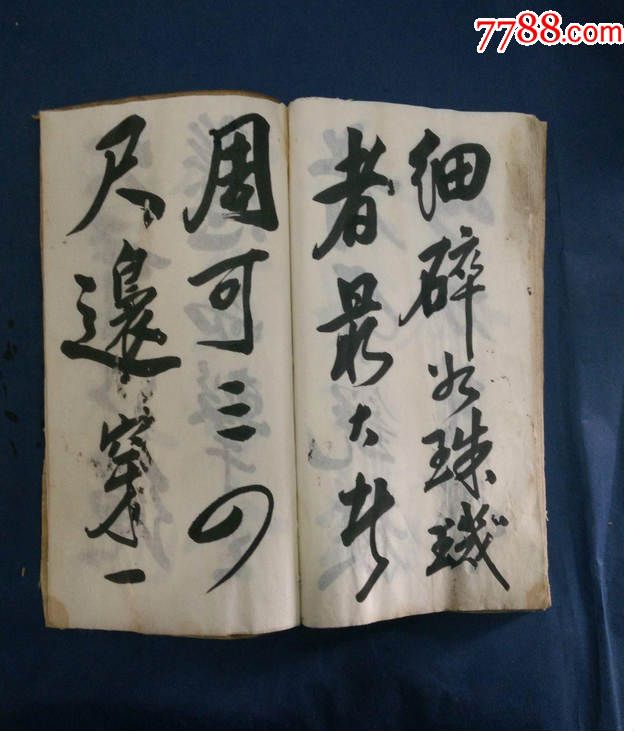 7788.com
細碎如珠璣
者最大者
周可三四
尺邊穿一